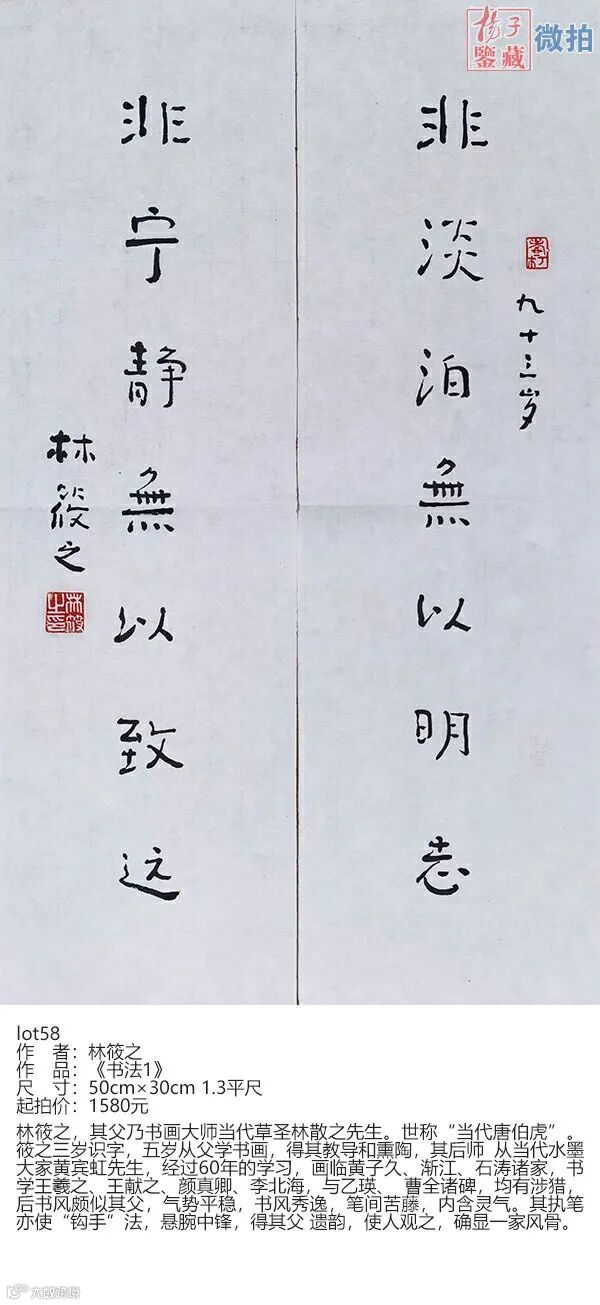 揚子
微拍
鑒藏
非淡泊無以明志
九十三岁
非宁静無以致远
林筱之
林筱之印
lot58
作 者：林筱之
作 品：《书法1》
尺 寸：50cm×30cm 1.3平尺
起拍价：1580元
林筱之，其父乃书画大师当代草圣林散之先生。世称“当代唐伯虎”。
筱之三岁识字，五岁从父学书画，得其教导和熏陶，其后师 从当代水墨
大家黄宾虹先生，经过60年的学习，画临黄子久、渐江、石涛诸家，书
学王羲之、王献之、颜真卿、李北海，与乙瑛、 曹全诸碑，均有涉猎，
后书风颇似其父，气势平稳，书风秀逸，笔间苦藤，内含灵气。其执笔
亦使“钩手”法，悬腕中锋，得其父 遗韵，使人观之，确显一家风骨。
大威跨境